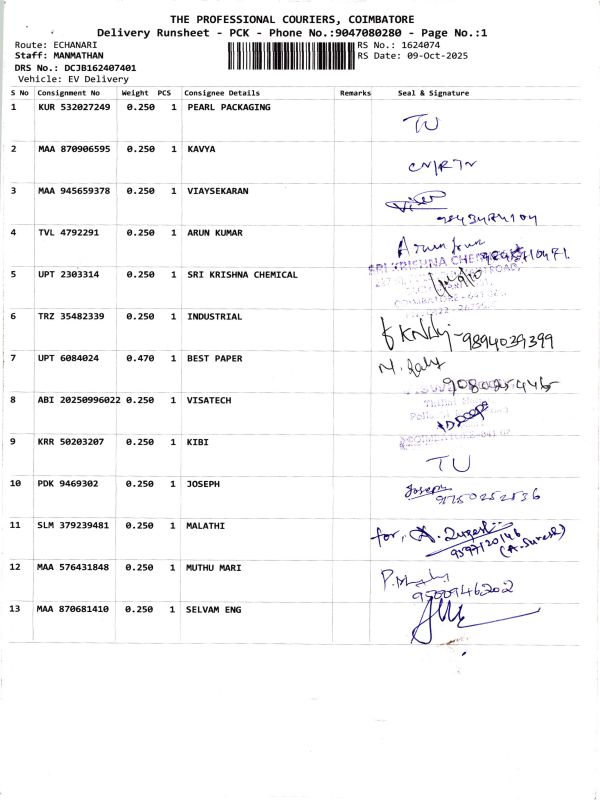 THE PROFESSIONAL COURIERS, COIMBATORE
Delivery Runsheet - PCK - Phone No.:9047080280 - Page No.:1
Route: ECHANARI
RS No.: 1624074
Staff: MANMATHAN
RS Date: 09-Oct-2025
DRS No.: DCJB162407401
Vehicle: EV Delivery
S No Consignment No Weight PCS Consignee Details Remarks Seal & Signature
1 KUR 532027249 0.250 1 PEARL PACKAGING
TU
2 MAA 870906595 0.250 1 KAVYA
CN/RTN
3 MAA 945659378 0.250 1 VIAYSEKARAN
4 TVL 4792291 0.250 1 ARUN KUMAR
Arun
5 UPT 2303314 0.250 1 SRI KRISHNA CHEMICAL
SRI KRISHNA CHEM
ROAD,
6 TRZ 35482339 0.250 1 INDUSTRIAL
9894039399
7 UPT 6084024 0.470 1 BEST PAPER
8 ABI 20250996022 0.250 1 VISATECH
9 KRR 50203207 0.250 1 KIBI
TU
10 PDK 9469302 0.250 1 JOSEPH
Joseph
9750252536
11 SLM 379239481 0.250 1 MALATHI
for, A.
9597120146
(A. Suresh)
12 MAA 576431848 0.250 1 MUTHU MARI
9500946202
13 MAA 870681410 0.250 1 SELVAM ENG